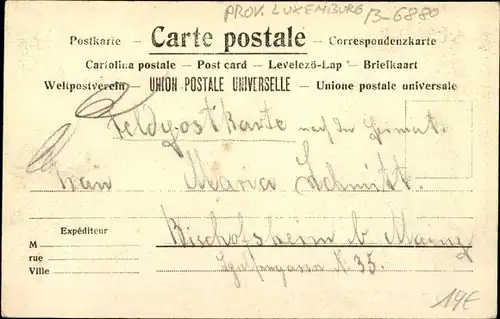 PROV. LUXEMBURG B-6880
Postkarte — Carte postale — Correspondenzkarte
Cartolina postale — Post card — Levelező-Lap — Briefkaart
Weltpostverein — UNION POSTALE UNIVERSELLE — Unione postale universale
Feldpostkarte nach der Heimat.
Frau Maria Schmitt.
Expéditeur
Bischofsheim b Mainz
M
rue N 35.
Ville
19E